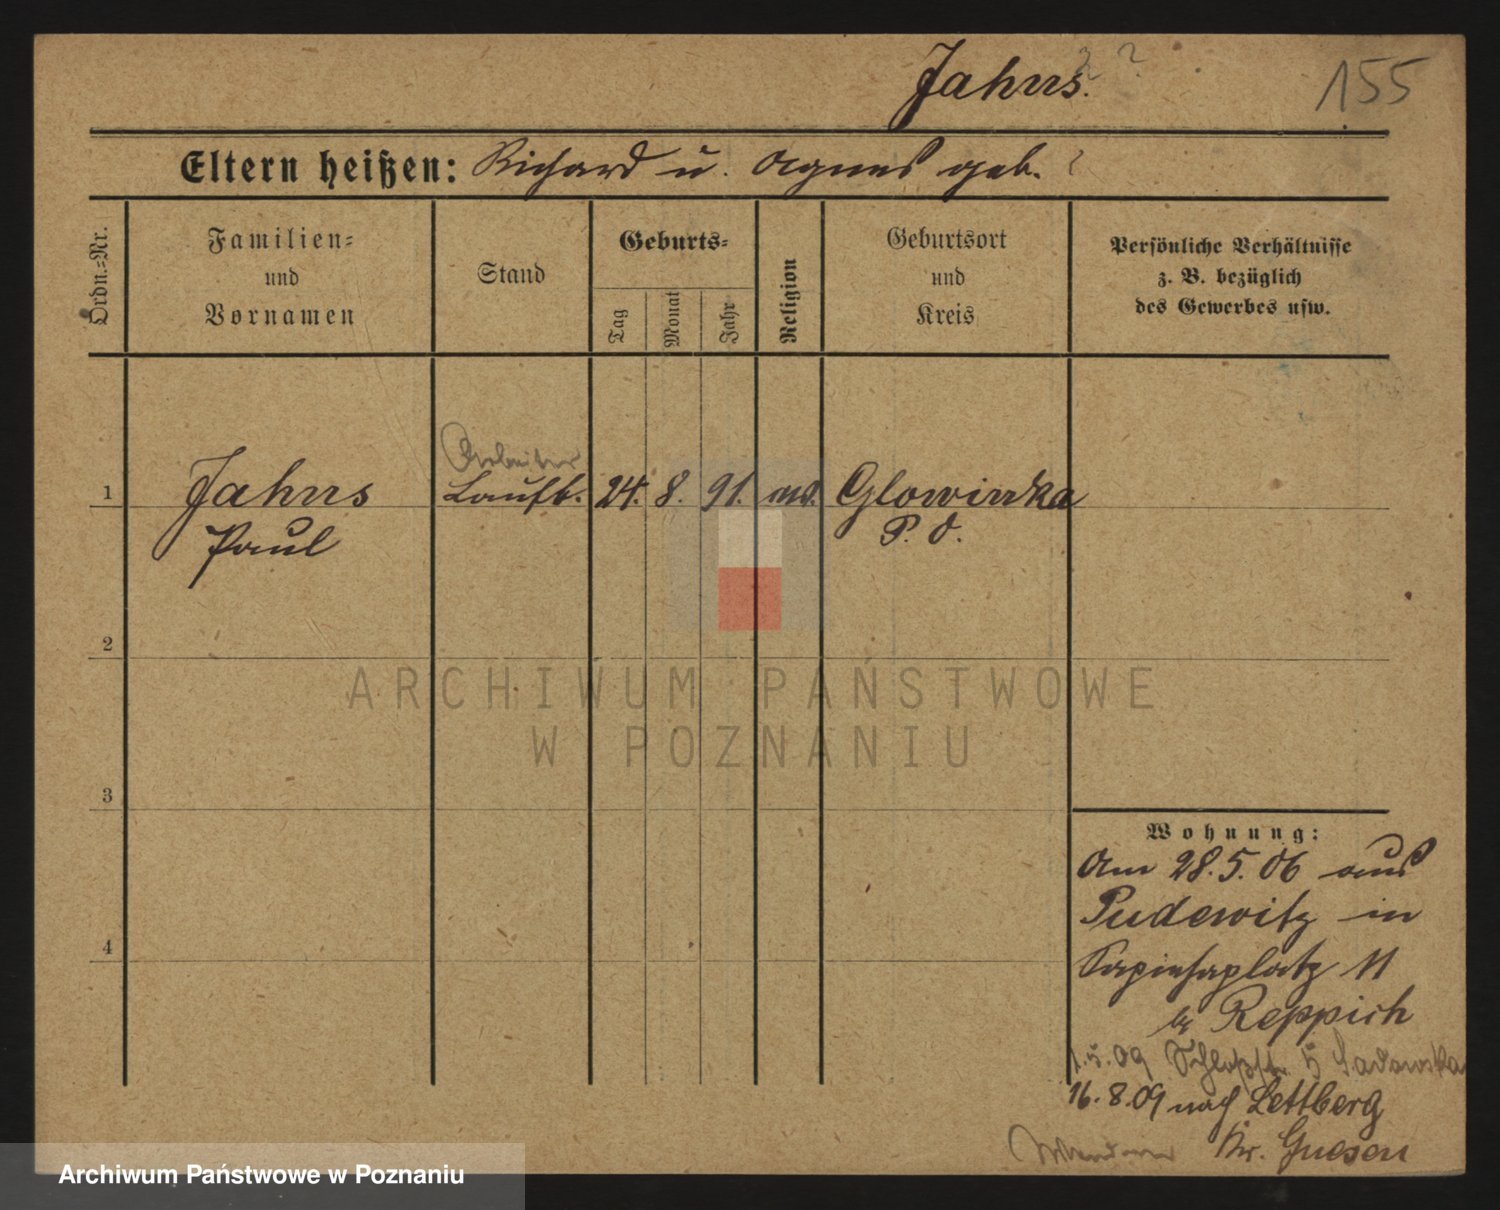 Jahns. ?
155
Eltern heißen: Richard u. Agnes geb. ?
Ordn.-Nr.
Familien-
und
Vornamen
Stand
Geburts-
Tag
Monat
Jahr
Religion
Geburtsort
und
Kreis
Persönliche Verhältnisse
z. B. bezüglich
des Gewerbes usw.
Arbeiter
1 Jahns Laufb. 24. 8. 91. Glowinka
Paul P. O.
2
3
4
ARCHIWUM PAŃSTWOWE
W POZNANIU
Wohnung:
Am 28.5.06 aus
Pudewitz in
Sapiehaplatz 11
b/ Reppich
1.5.09 Schloßstr. 5 Sadowska
16.8.09 nach Lettberg
Kr. Gnesen
Archiwum Państwowe w Poznaniu